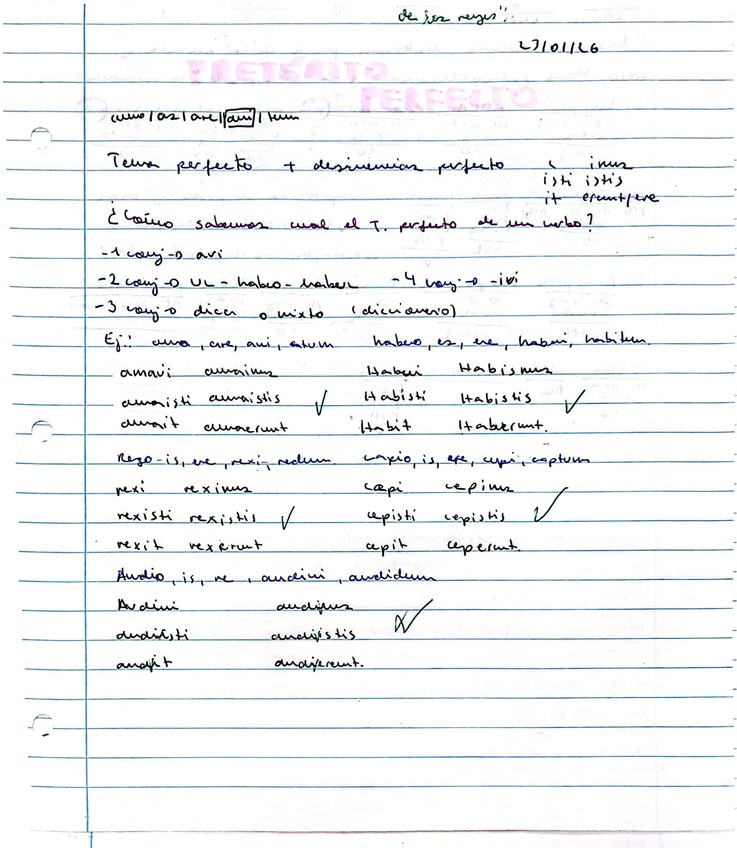 de los reyes".
23/01/26
PRETÉRITO
PERFECTO
amo/as/are/avi/tum
Tema perfecto + desinencias perfecto i imus
isti istis
it erunt/ere
¿Cómo sabemos cual el T. perfecto de un verbo?
-1 conj-o avi
-2 conj-o UI - habeo - haber -4 conj-o -ivi
-3 conj-o dicci o mixto (diccionario)
Ej: amo, are, avi, atum habeo, es, ere, habui, habitum.
amavi amaimus Habui Habismus
amaisti amaistis ✓ Habisti Habistis ✓
amait amaerunt Habit Haberunt.
Rego-is, ere, rexi, rectum capio, is, ere, cepi, captum
rexi reximus cæpi cepimus
rexisti rexistis ✓ cepisti cepistis ✓
rexit rexerunt cepit ceperunt.
Audio, is, re, audivi, audidum
Audivi
audiisti audiistis
audiit audierunt.